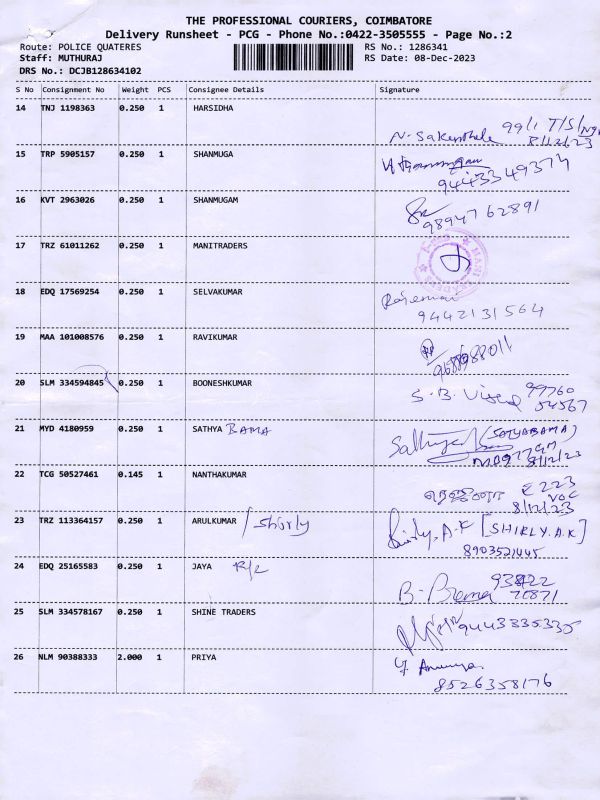 THE PROFESSIONAL COURIERS, COIMBATORE
Delivery Runsheet - PCG - Phone No.:0422-3505555 - Page No.:2
Route: POLICE QUATERES RS No.: 1286341
Staff: MUTHURAJ RS Date: 08-Dec-2023
DRS No.: DCJB128634102
S No Consignment No Weight PCS Consignee Details Signature
14 TNJ 1198363 0.250 1 HARSIDHA
99/1 T/S/
8/12/23
15 TRP 5905157 0.250 1 SHANMUGA
9443349374
16 KVT 2963026 0.250 1 SHANMUGAM
9894762891
17 TRZ 61011262 0.250 1 MANITRADERS
18 EDQ 17569254 0.250 1 SELVAKUMAR
9442131564
19 MAA 101008576 0.250 1 RAVIKUMAR
20 SLM 334594845 0.250 1 BOONESHKUMAR
S.B. 99760
54567
21 MYD 4180959 0.250 1 SATHYA BAMA
(SATYABAMA)
8/12/23
22 TCG 50527461 0.145 1 NANTHAKUMAR
E 223
VOC
8/12/23
23 TRZ 113364157 0.250 1 ARULKUMAR / Shirly
Shirly, A.K [SHIRLY.A.K]
8903521445
24 EDQ 25165583 0.250 1 JAYA
B. Prema
70871
25 SLM 334578167 0.250 1 SHINE TRADERS
9443335335
26 NLM 90388333 2.000 1 PRIYA
8526358176